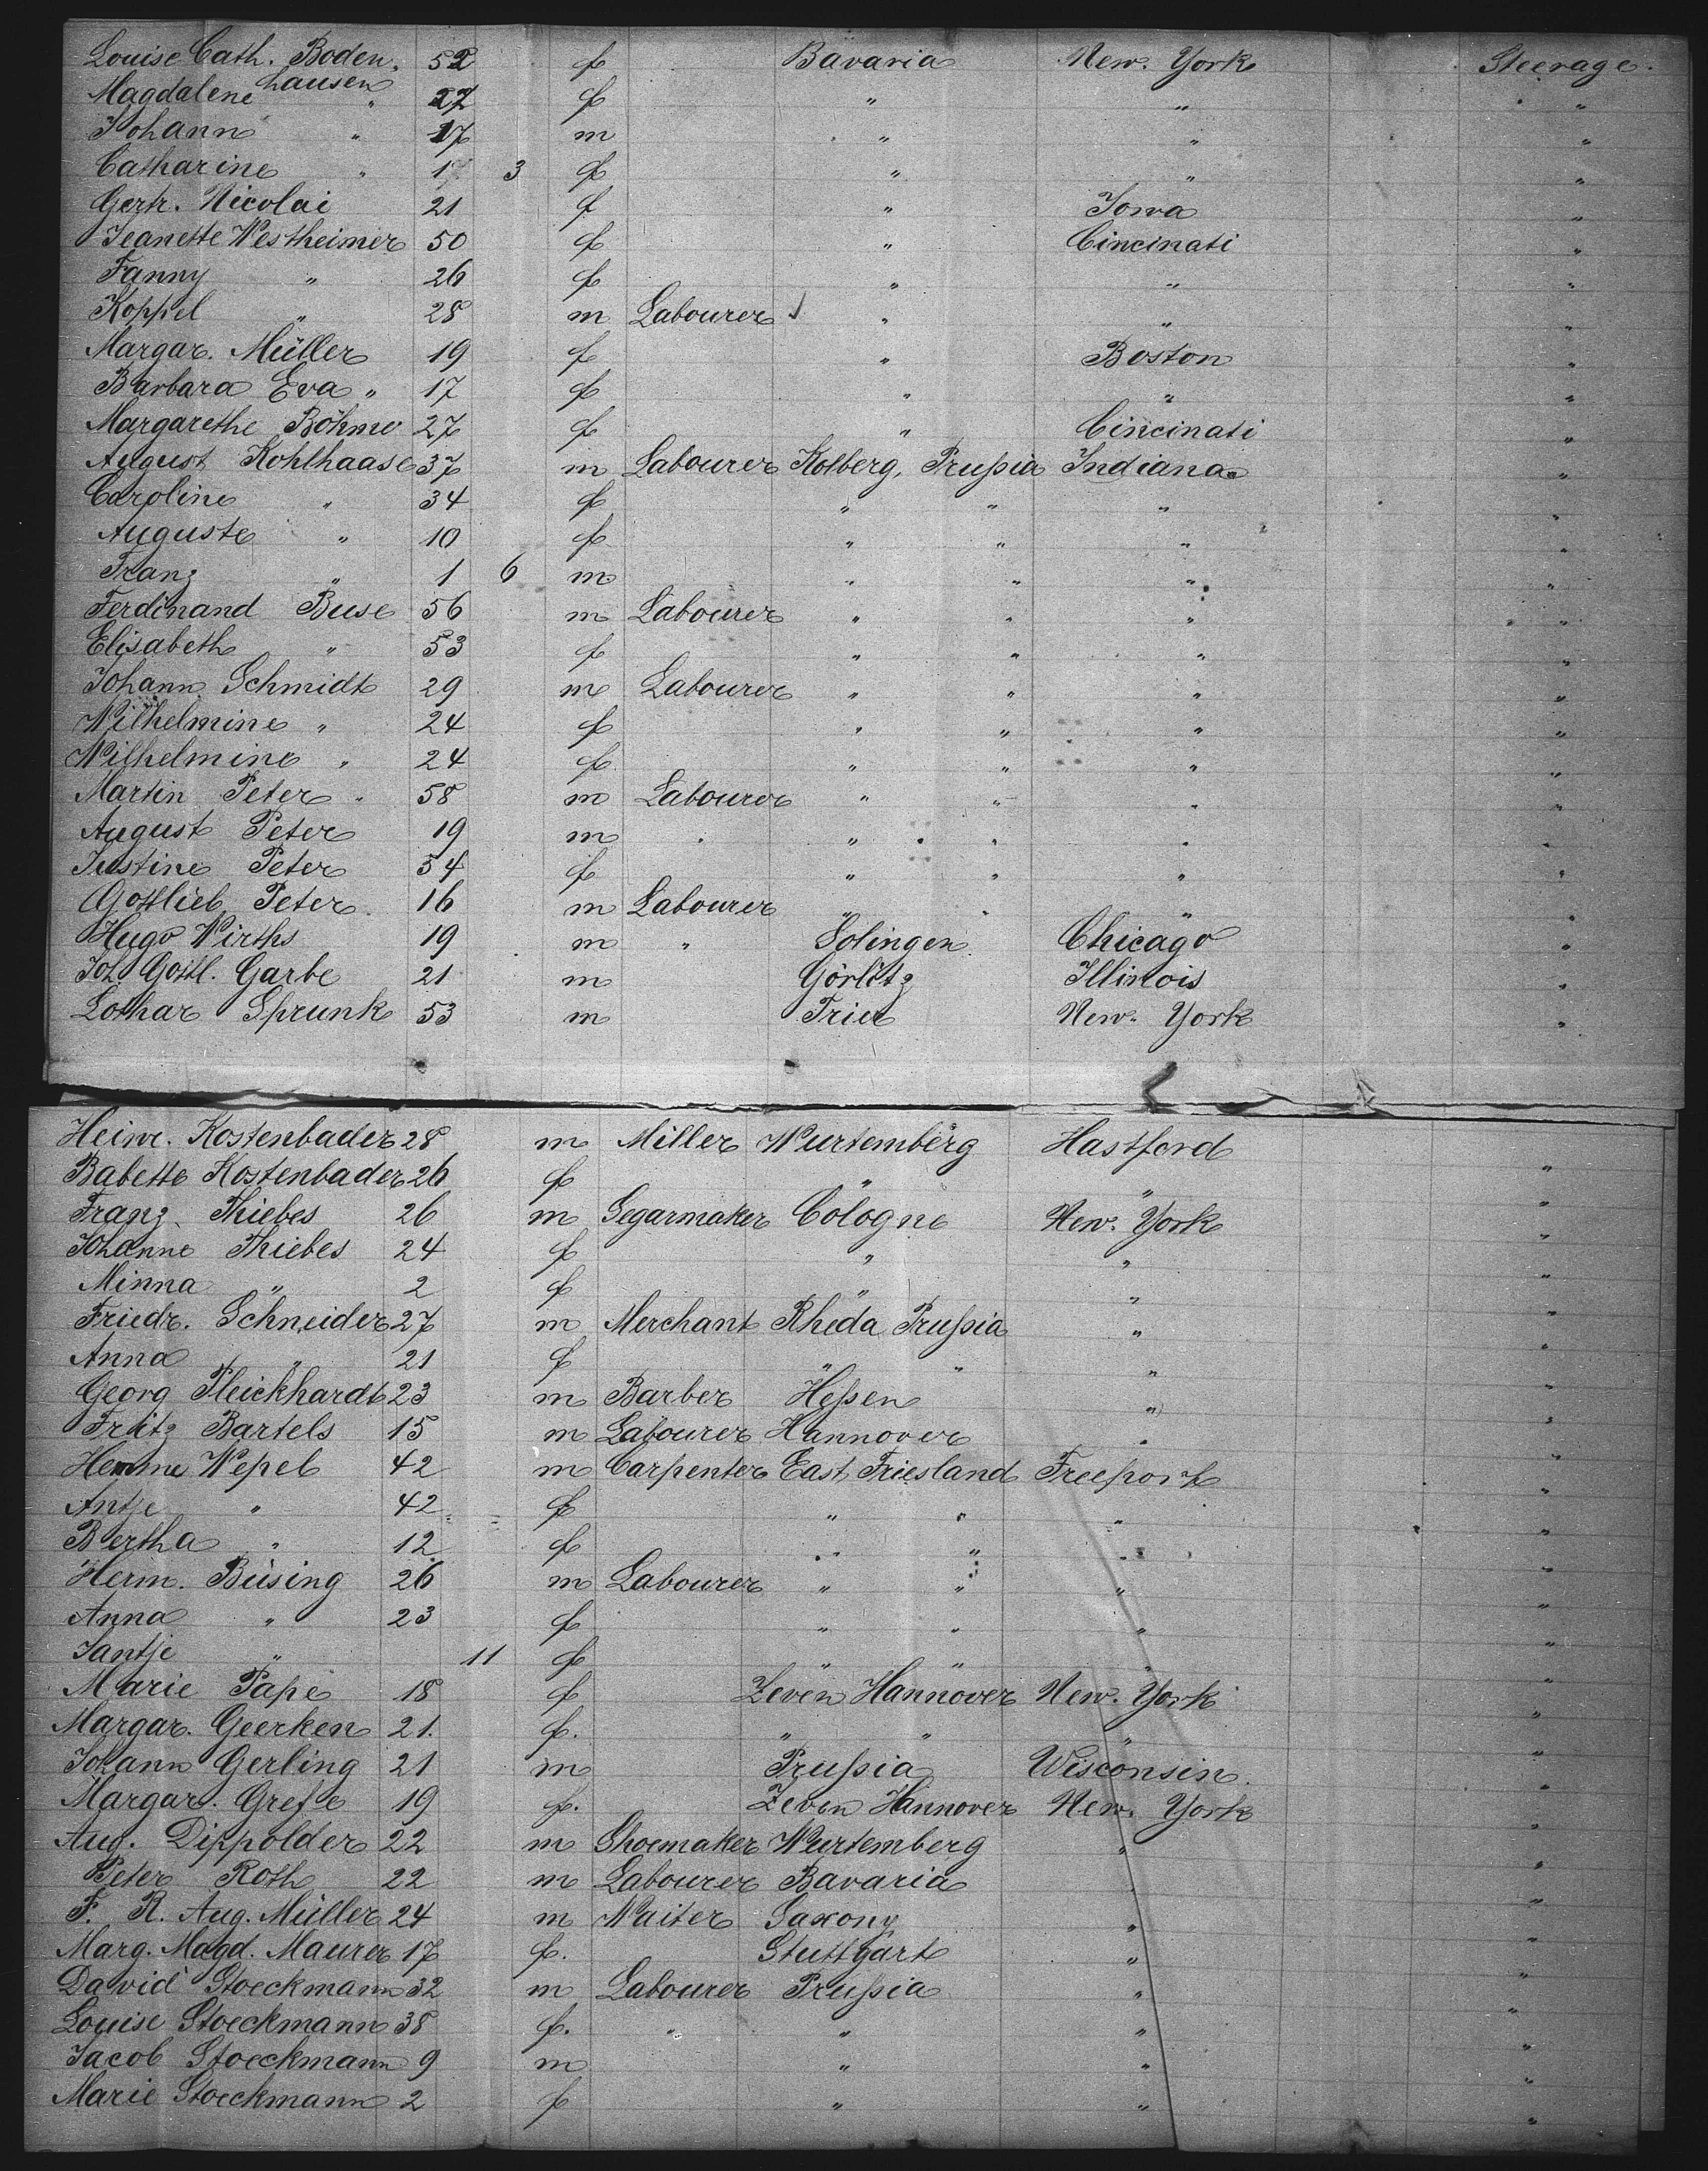 Louise Cath. Boden, 52 f Bavaria New. York Steerage.
hausen
Magdalene " 27 f " " "
Johann " 17 m " " "
Catharine " 1 3 f " " "
Gertr. Nicolai 21 f " Iowa "
Jeanette Westheimer 50 f " Cincinati "
Fanny " 26 f " " "
Koppel " 28 m Labourer " " "
Margar. Müller 19 f " Boston "
Barbara Eva " 17 f " " "
Margarethe Böhme 27 f " Cincinati "
August Kohlhaase 37 m Labourer Kolberg, Prußia Indiana "
Caroline " 34 f " " " "
Auguste " 10 f " " " "
Franz " 1 6 m " " " "
Ferdinand Buse 56 m Labourer " " " "
Elisabeth " 53 f " " " "
Johann Schmidt 29 m Labourer " " " "
Wilhelmine " 24 f " " " "
Wilhelmine " 24 f " " " "
Martin Peter " 58 m Labourer " " " "
August Peter 19 m " " " " "
Justine Peter 54 f " " " "
Gottlieb Peter 16 m Labourer " " " "
Hugo Wirths 19 m " Solingen Chicago "
Joh. Gottl. Garbe 21 m Görlitz Illinois "
Lothar Sprunk 53 m Trier New. York "
Heinr. Kostenbader 28 m Miller Wurtemberg Hastford "
Babette Kostenbader 26 f " " "
Franz Thiebes 26 m Segarmaker Cologne New. York "
Johanne Thiebes 24 f " " "
Minna " 2 f " " "
Friedr. Schneider 27 m Merchant Rheda Prußia " "
Anna " 21 f " " " "
Georg Pleickhardt 23 m Barber Heßen " "
Fritz Bartels 15 m Labourer Hannover " "
Hemme Wepel 42 m Carpenter East Friesland Freeport "
Antje " 42 f " " " "
Bertha " 12 f " " " "
Herm. Büsing 26 m Labourer " " " "
Anna " 23 f " " " "
Jantje " 11 f " " " "
Marie Pape 18 f Zeven Hannover New. York "
Margar. Geerken 21. f. " " " "
Johann Gerling 21 m Prußia Wisconsin. "
Margar. Grefe 19 f. Zeven Hannover New. York "
Aug. Dippolder 22 m Shoemaker Wurtemberg " "
Peter Roth 22 m Labourer Bavaria " "
F. R. Aug. Müller 24 m Waiter Saxony " "
Marg. Magd. Maurer 17 f. Stuttgart " "
David Stoeckmann 32 m Labourer Prußia " "
Louise Stoeckmann 38 f. " " " "
Jacob Stoeckmann 9 m " " "
Marie Stoeckmann 2 f " " "